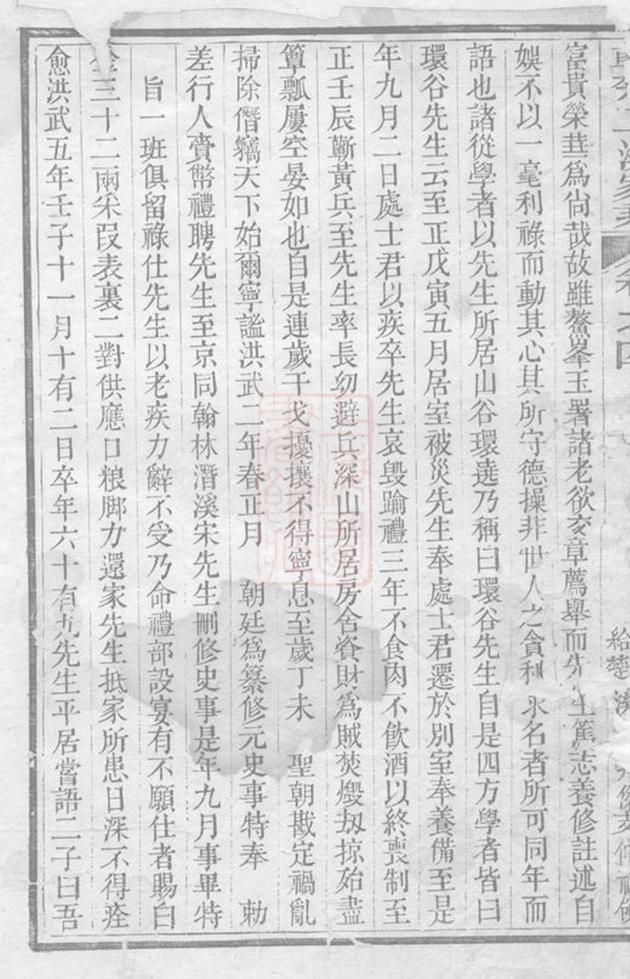 富貴榮華爲尙哉故雖鰲峯玉署諸老欲交章薦舉而先生篤志養修註述自
娛不以一毫利祿而動其心其所守德操非世人之貪利求名者所可同年而
語也諸從學者以先生所居山谷環遶乃稱曰環谷先生自是四方學者皆曰
環谷先生云至正戊寅五月居室被災先生奉處士君遷於別室奉養備至是
年九月二日處士君以疾卒先生哀毀踰禮三年不食肉不飲酒以終喪制至
正壬辰蘄黃兵至先生率長幼避兵深山所居房舍資財爲賊焚燬刼掠始盡
簞瓢屢空晏如也自是連歲干戈擾攘不得寧息至歲丁未 聖朝戡定禍亂
掃除僭竊天下始爾寧謐洪武二年春正月 朝廷爲纂修元史事特奉 勅
差行人賷幣禮聘先生至京同翰林潛溪宋先生刪修史事是年九月事畢特
旨一班俱留祿仕先生以老疾力辭不受乃命禮部設宴有不願仕者賜白
金三十二兩釆段表裏二對供應口粮脚力還家先生抵家所患日深不得痊
愈洪武五年壬子十一月十有二日卒年六十有九先生平居嘗語二子曰吾